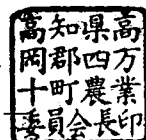 高知県高
岡郡四万
十町農業
委員会長印